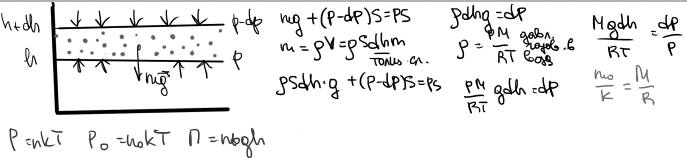 h+dh
p-dp
h
P
mg⃗
mg + (P-dP)S = PS
m = ρV = ρSdhm
ρSdh·g + (P-dP)S = PS
ρdhg = dP
ρ = PM/RT
PM/RT gdh = dP
Mgdh/RT = dP/P
m₀/K = M/R
P = nkT P₀ = n₀kT П = n₀gh